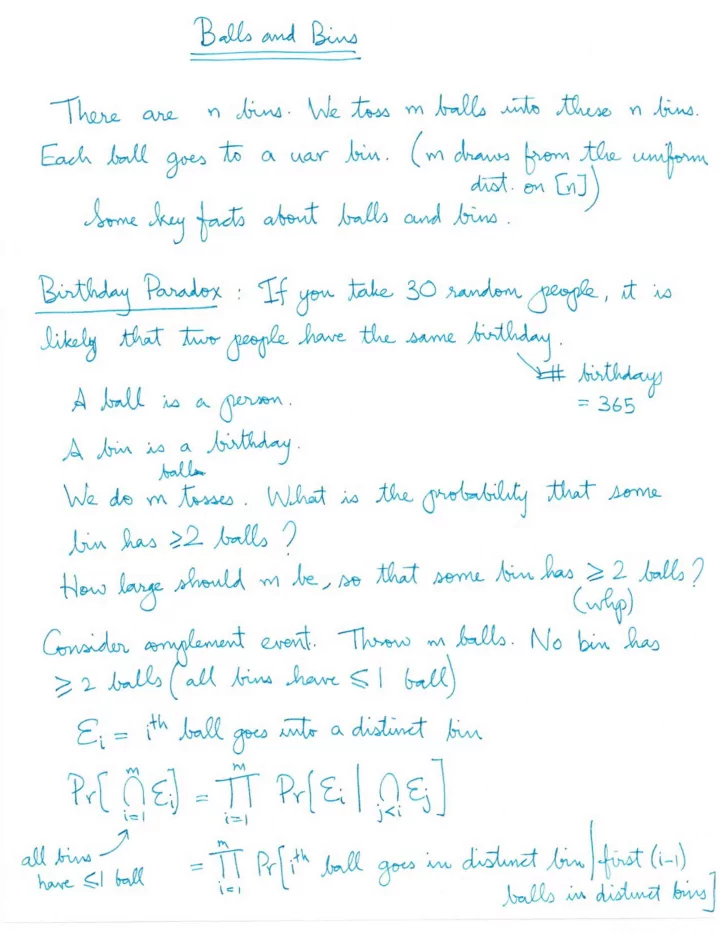 Balls and Bins
There are n bins. We toss m balls into these n bins.
Each ball goes to a uar bin. (m draws from the uniform
dist. on [n])
Some key facts about balls and bins.
Birthday Paradox : If you take 30 random people, it is
likely that two people have the same birthday.
# birthdays
= 365
A ball is a person.
A bin is a birthday.
balls
We do m tosses. What is the probability that some
bin has ≥2 balls ?
How large should m be, so that some bin has ≥ 2 balls?
(whp)
Consider complement event. Throw m balls. No bin has
≥ 2 balls (all bins have ≤ 1 ball)
Ɛᵢ = iᵗʰ ball goes into a distinct bin
Pr[ ⋂ᵢ₌₁ᵐ Ɛᵢ] = ∏ᵢ₌₁ᵐ Pr[Ɛᵢ | ⋂_{j<i} Ɛⱼ]
all bins
have ≤1 ball
= ∏ᵢ₌₁ᵐ Pr[iᵗʰ ball goes in distinct bin | first (i-1)
balls in distinct bins]